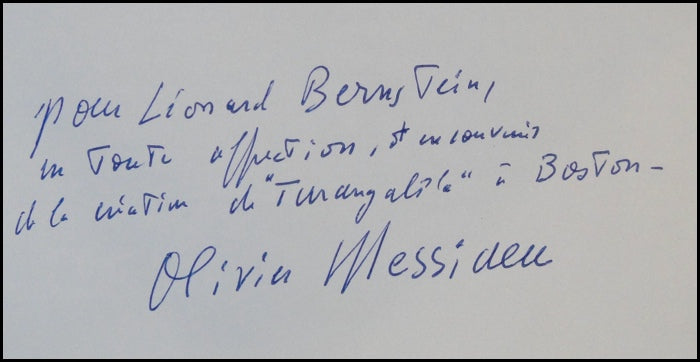 pour Léonard Bernstein,
en toute affection, et en souvenir
de la création de "Turangalîla" à Boston -
Olivier Messiaen